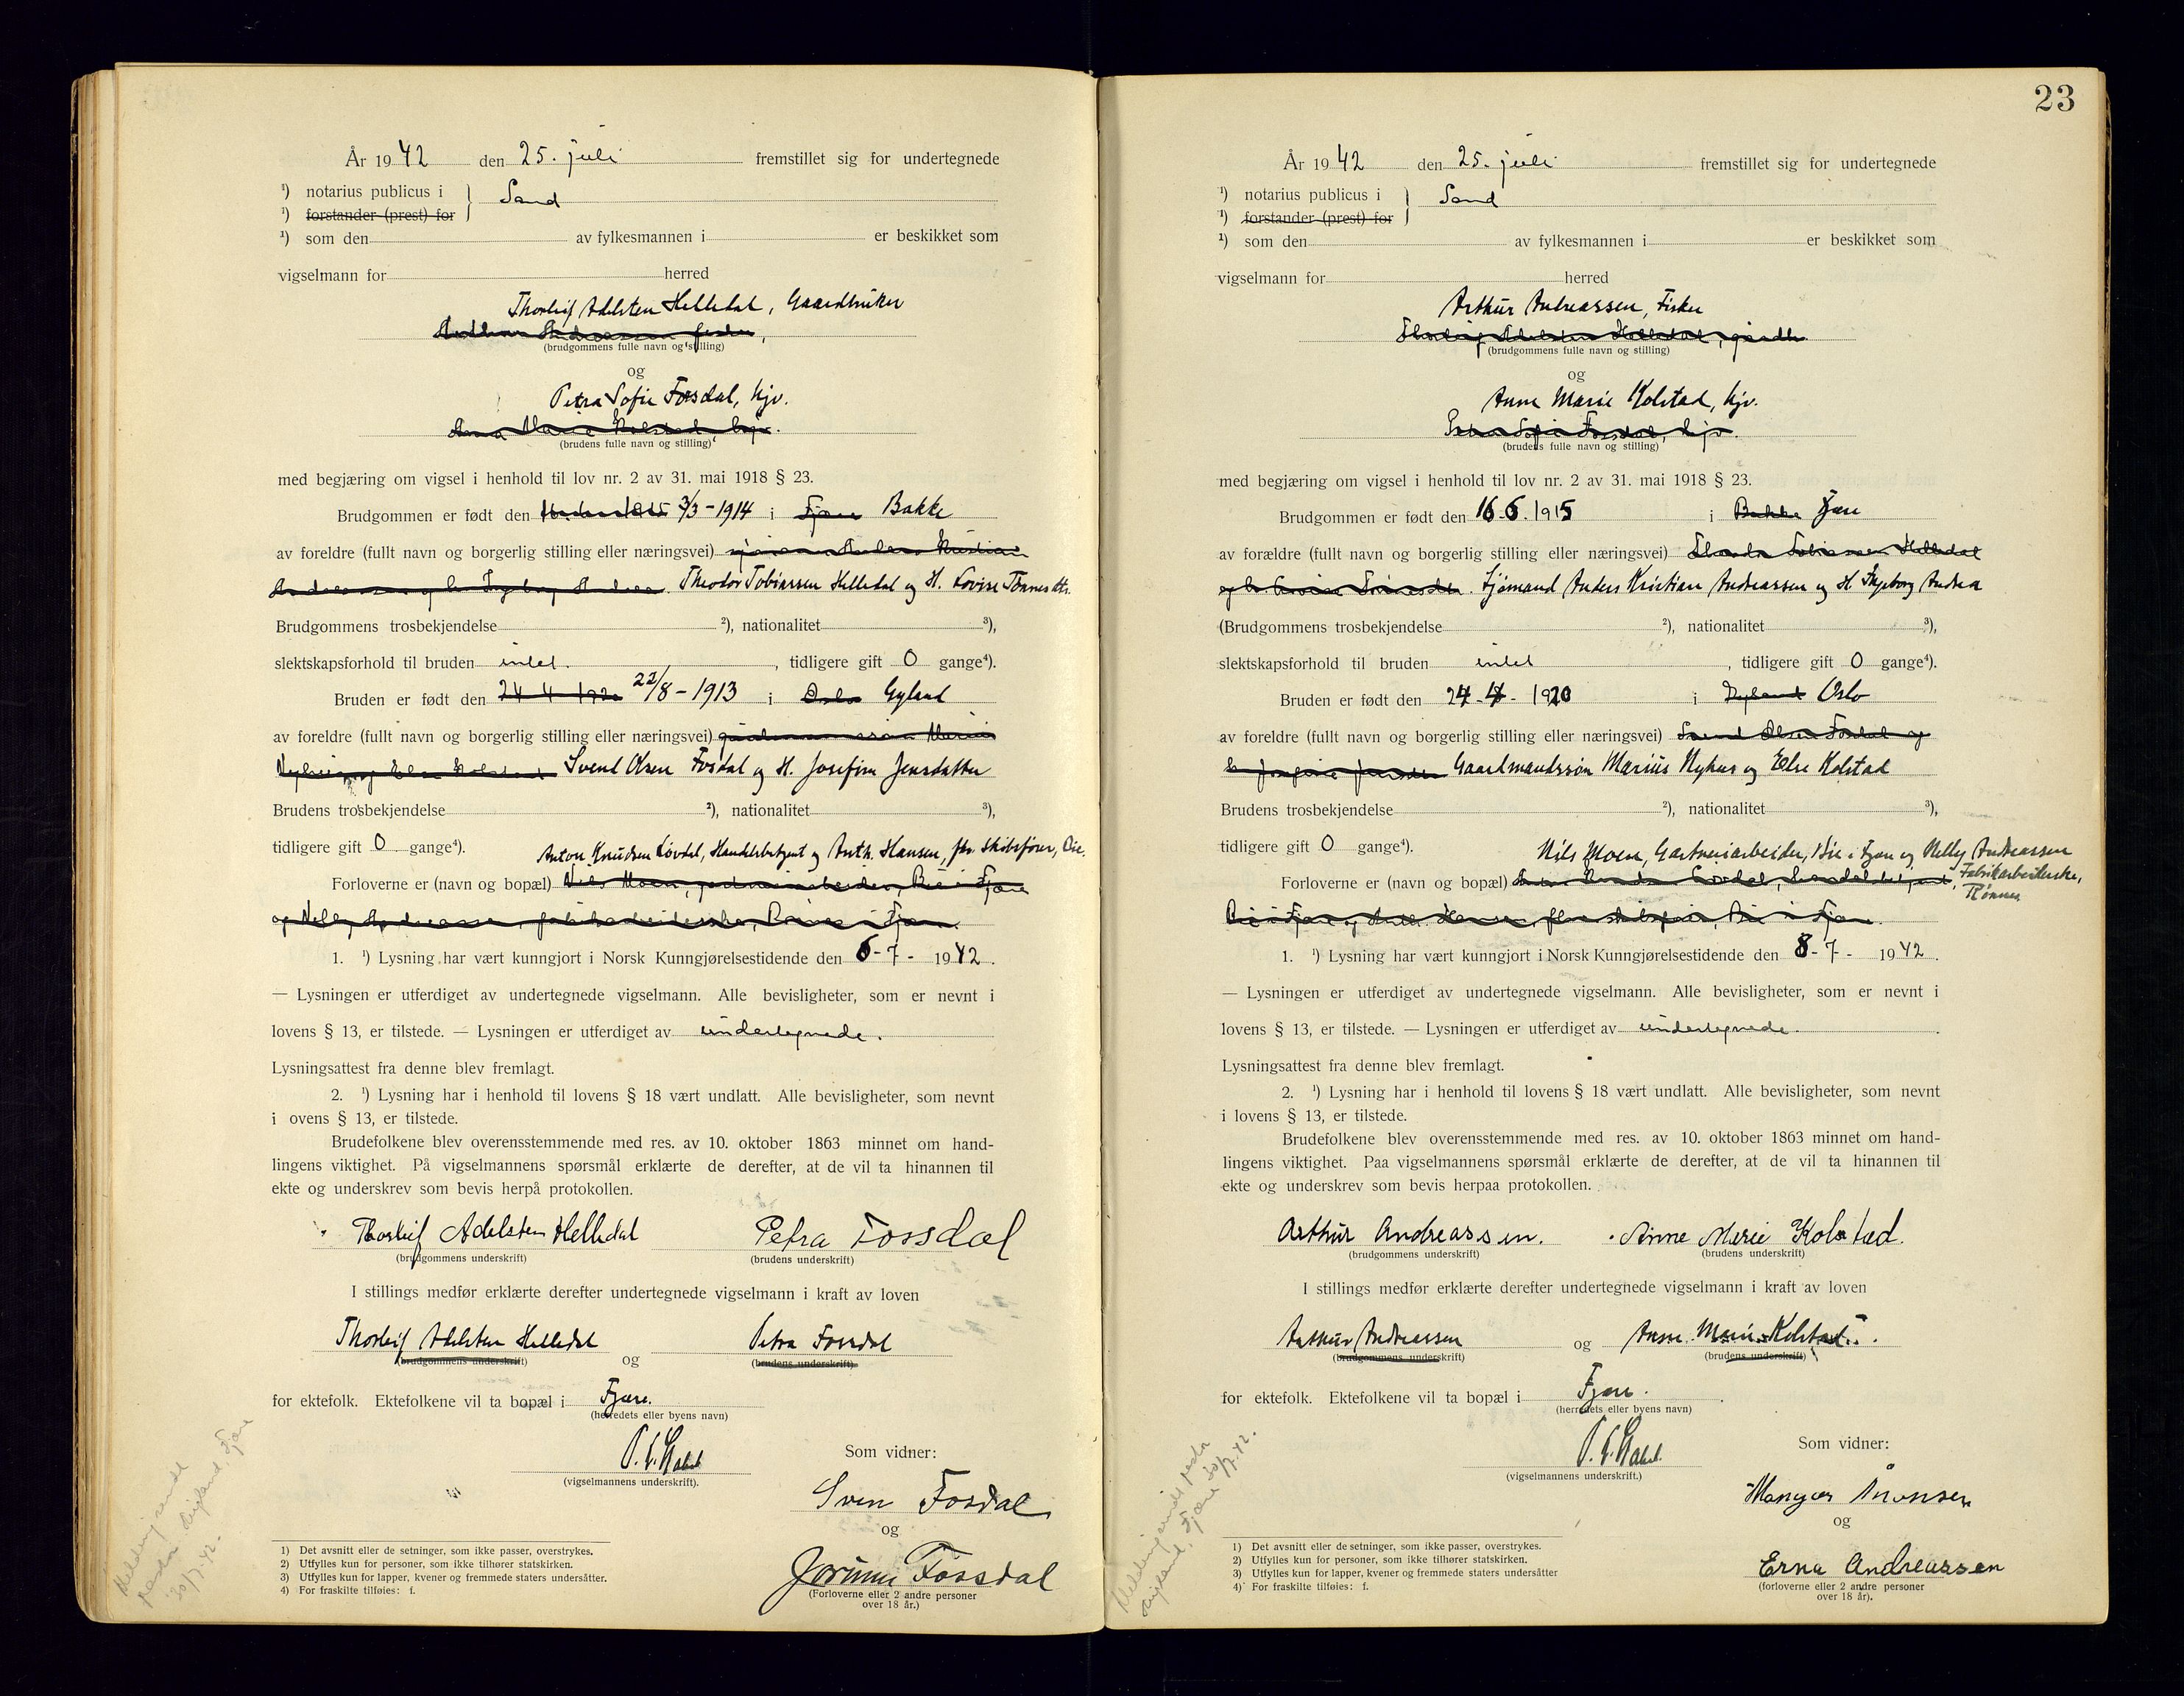 År 1942 den 25. juli fremstillet sig for undertegnede
¹) notarius publicus i } Sand
¹) forstander (prest) for
¹) som den av fylkesmannen i er beskikket som
vigselmann for herred
Thorleif Adelsten Helledal, Gaardbruker
(brudgommens fulle navn og stilling)
og
Petra Sofie Fossdal, hjv.
Anna Marie Kolstad hjv.
(brudens fulle navn og stilling)
med begjæring om vigsel i henhold til lov nr. 2 av 31. mai 1918 § 23.
Brudgommen er født den 3/3-1914 i Fjære Bakke
av foreldre (fullt navn og borgerlig stilling eller næringsvei) Kristian
Theodor Tobiassen Helledal og H. Lovise Tønnesdtr.
Brudgommens trosbekjendelse ²), nationalitet ³),
slektskapsforhold til bruden intet. , tidligere gift 0 gange⁴).
Bruden er født den 24 4 1920 22/8-1913 i Oslo Gyland
av foreldre (fullt navn og borgerlig stilling eller næringsvei)
Svend Olsen Fosdal og H. Josefine Jensdatter
Brudens trosbekjendelse ²), nationalitet ³),
tidligere gift 0 gange⁴). Anton Knudsen Løvdal, Handelsbetjent og Anth. Hansen, fhv. Skibsfører, Bie.
Forloverne er (navn og bopæl) Nils Moen, gartneriarbeider, Bie i Fjære
og Nelly Andreassen, fabrikarbeiderske, Rønnes i Fjære.
1. ¹) Lysning har vært kunngjort i Norsk Kunngjørelsestidende den 6-7- 1942.
— Lysningen er utferdiget av undertegnede vigselmann. Alle bevisligheter, som er nevnt i
lovens § 13, er tilstede. — Lysningen er utferdiget av undertegnede.
Lysningsattest fra denne blev fremlagt.
2. ¹) Lysning har i henhold til lovens § 18 vært undlatt. Alle bevisligheter, som nevnt
i ovens § 13, er tilstede.
Brudefolkene blev overensstemmende med res. av 10. oktober 1863 minnet om hand-
lingens viktighet. På vigselmannens spørsmål erklærte de derefter, at de vil ta hinannen til
ekte og underskrev som bevis herpå protokollen.
Thorleif Adelsten Helledal Petra Fossdal
(brudgommens underskrift) (brudens underskrift)
I stillings medfør erklærte derefter undertegnede vigselmann i kraft av loven
Thorleif Adelsten Helledal og Petra Fossdal
(brudgommens underskrift) (brudens underskrift)
for ektefolk. Ektefolkene vil ta bopæl i Fjære.
(herredets eller byens navn)
(vigselmannens underskrift).
Som vidner:
Sven Fosdal
og
Jorunn Fossdal
(Forloverne eller 2 andre personer
over 18 år.)
1) Det avsnitt eller de setninger, som ikke passer, overstrykes.
2) Utfylles kun for personer, som ikke tilhører statskirken.
3) Utfylles kun for lapper, kvener og fremmede staters undersåtter.
4) For fraskilte tilføies: f.
Melding sendt
30/7.42.
23
År 1942 den 25. juli fremstillet sig for undertegnede
¹) notarius publicus i } Sand
¹) forstander (prest) for
¹) som den av fylkesmannen i er beskikket som
vigselmann for herred
Arthur Andreassen, Fisker
Thorleif Adelsten Helledal, gaardbr.
(brudgommens fulle navn og stilling)
og
Anne Marie Kolstad, hjv.
Petra Sofie Fossdal, hjv.
(brudens fulle navn og stilling)
med begjæring om vigsel i henhold til lov nr. 2 av 31. mai 1918 § 23.
Brudgommen er født den 16.6.1915 i Bakke Fjære
av forældre (fullt navn og borgerlig stilling eller næringsvei) Tobiassen Helledal
Sjømand Anders Kristian Andreassen og H. Ingeborg Andrea
(Brudgommens trosbekjendelse ²), nationalitet ³),
slektskapsforhold til bruden intet , tidligere gift 0 gange⁴).
Bruden er født den 24-4-1920 i Gyland Oslo
av foreldre (fullt navn og borgerlig stilling eller næringsvei) Svend Olsen Fosdal og
Gaardmandssøn Marius Nyhus og Else Kolstad
Brudens trosbekjendelse ²), nationalitet ³),
tidligere gift 0 gange⁴). Nils Moen, Gartneriarbeider, Bie i Fjære og Nelly Andreassen
Fabrikarbeiderske,
Rønnes
Forloverne er (navn og bopæl) Anton Knudsen Løvdal, handelsbetjent,
Bie i Fjære og Anth. Hansen, fhv. skibsfører, Bie i Fjære.
1. ¹) Lysning har vært kunngjort i Norsk Kunngjørelsestidende den 8-7- 1942.
— Lysningen er utferdiget av undertegnede vigselmann. Alle bevisligheter, som er nevnt i
lovens § 13, er tilstede. — Lysningen er utferdiget av undertegnede.
Lysningsattest fra denne blev fremlagt.
2. ¹) Lysning har i henhold til lovens § 18 vært undlatt. Alle bevisligheter, som nevnt
i lovens § 13, er tilstede.
Brudefolkene blev overensstemmende med res. av 10. oktober 1863 minnet om hand-
lingens viktighet. Paa vigselmannens spørsmål erklærte de derefter, at de vil ta hinannen til
ekte og underskrev som bevis herpaa protokollen.
Arthur Andreassen. Anne Marie Kolstad.
(brudgommens underskrift) (brudens underskrift)
I stillings medfør erklærte derefter undertegnede vigselmann i kraft av loven
Arthur Andreassen og Anne Marie Kolstad
(brudgommens underskrift) (brudens underskrift)
for ektefolk. Ektefolkene vil ta bopæl i Fjære.
(herredets eller byens navn)
(vigselmannens underskrift.)
Som vidner:
og
Erna Andreassen
(forloverne eller 2 andre personer
over 18 år).
1) Det avsnitt eller de setninger, som ikke passer, overstrykes.
2) Utfylles kun for personer, som ikke tilhører statskirken.
3) Utfylles kun for lapper, kvener og fremmede staters undersåtter
4) For fraskilte tilføies: f.
Melding sendt
Fjære 30/7.42.